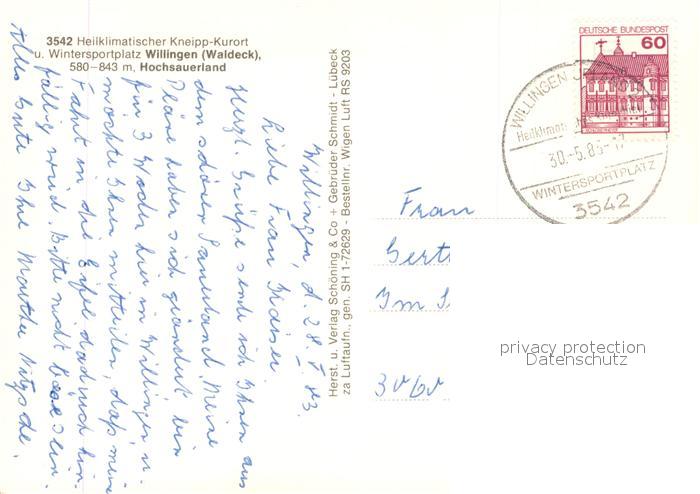 3542 Heilklimatischer Kneipp-Kurort
u. Wintersportplatz Willingen (Waldeck),
580–843 m, Hochsauerland
Willingen, d. 28. V. 83.
Liebe Frau Kaiser
Herzl. Grüße sende ich Ihnen aus
dem schönen Sauerland. Meine
Pläne haben sich geändert bin
für 3 Wochen hier in Willingen u.
möchte Ihnen mitteilen, daß meine
Fahrt in die Eifel dadurch hin-
fällig wird. Bitte nicht böse sein.
Alles Gute Ihre Martha
Herst. u. Verlag Schöning & Co + Gebrüder Schmidt - Lübeck
za Luftaufn., gen. SH 1-72629 - Bestellnr. Wigen Luft RS 9203
DEUTSCHE BUNDESPOST
60
WILLINGEN
30.-5.83-17
WINTERSPORTPLATZ
3542
Frau
Gert
Im
privacy protection
Datenschutz